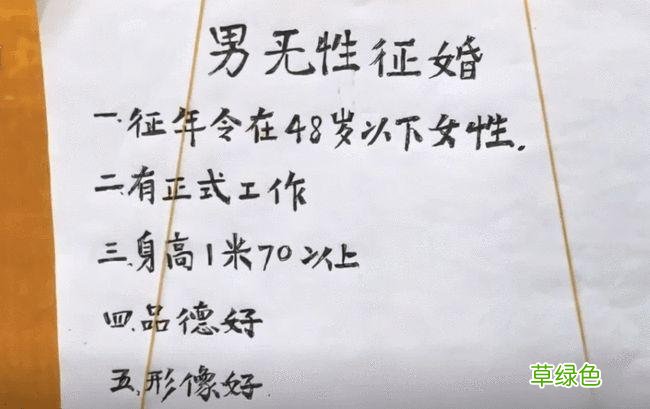 男无性征婚
一.征年令在48岁以下女性.
二.有正式工作
三.身高1米70以上
四.品德好
五.形像好
草绿色